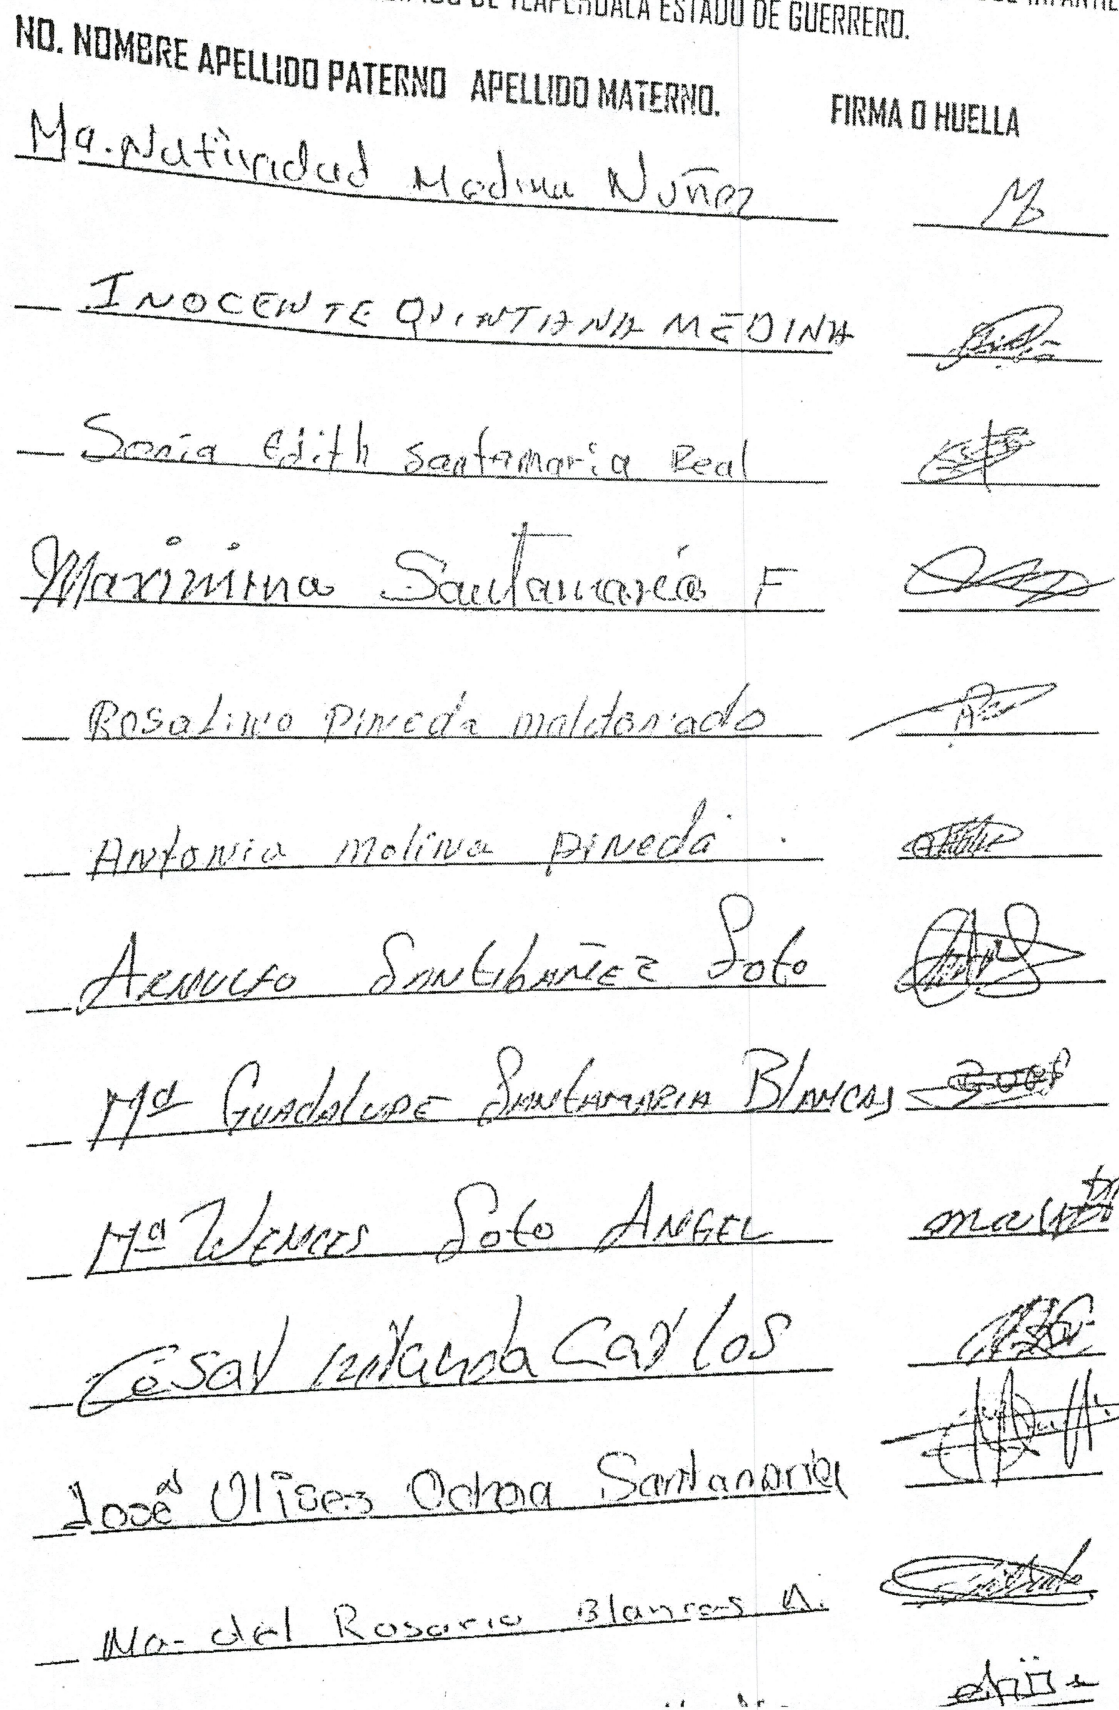 DE TLAPEHUALA ESTADO DE GUERRERO.
NO. NOMBRE APELLIDO PATERNO APELLIDO MATERNO. FIRMA O HUELLA
Ma. Natividad Medina Nuñez
INOCENTE QUINTANA MEDINA
Sonia Edith Santamaria Real
Maximina Santamaria F
Rosalino Pineda maldonado
Antonia molina pineda
ARNULFO SANTIBAÑEZ Soto
Ma GUADALUPE SANTAMARIA BLANCAS
Ma WENCES Soto ANGEL
César miranda Carlos
José Ulises Ochoa Santamaria
Ma- del Rosario Blancas A.